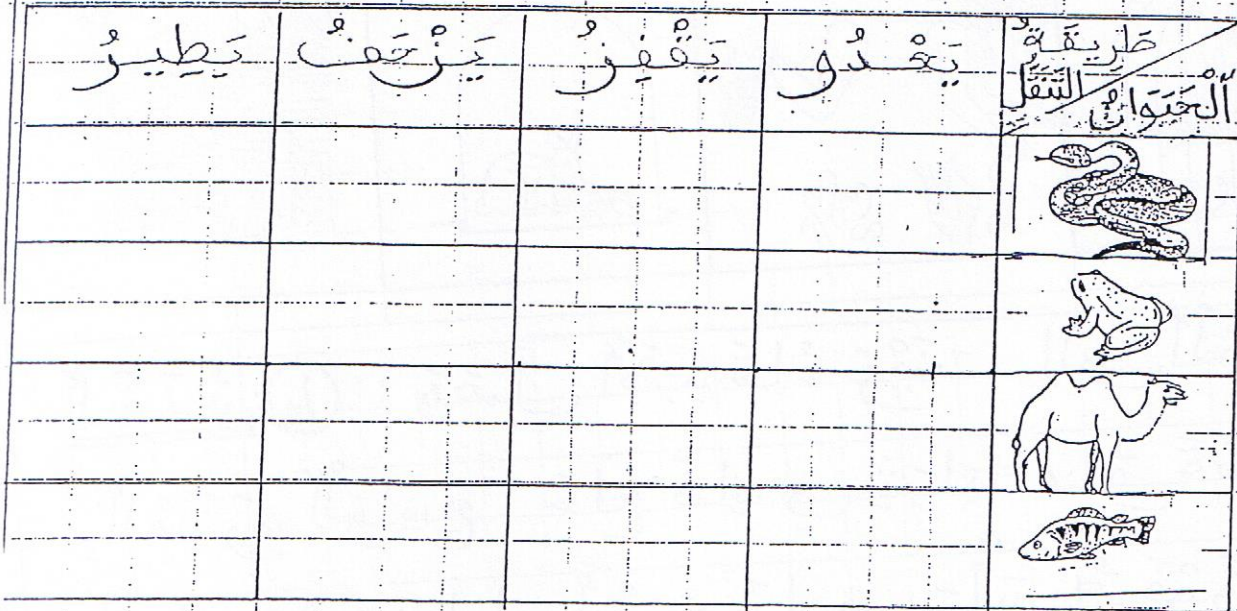 طَرِيقَةُ التَّنَقُّلِ
اَلْحَيَوَانُ
يَعْدُو
يَقْفِزُ
يَزْحَفُ
يَطِيرُ